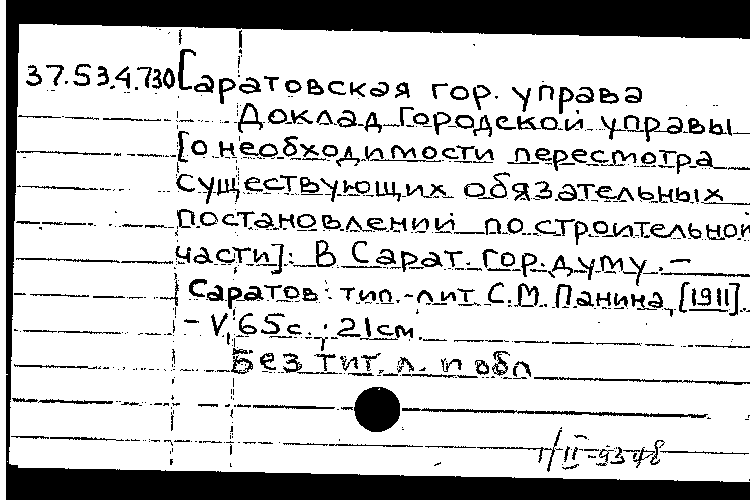 37.53.4.730 Саратовская гор. управа
Доклад Городской управы
[о необходимости пересмотра
существующих обязательных
постановлений по строительной
части]: В Сарат. гор. думу. –
Саратов: тип.-лит С.М. Панина, [1911].
– V, 65 с.; 21 см.
Без тит. л. и обл
1/II-9348